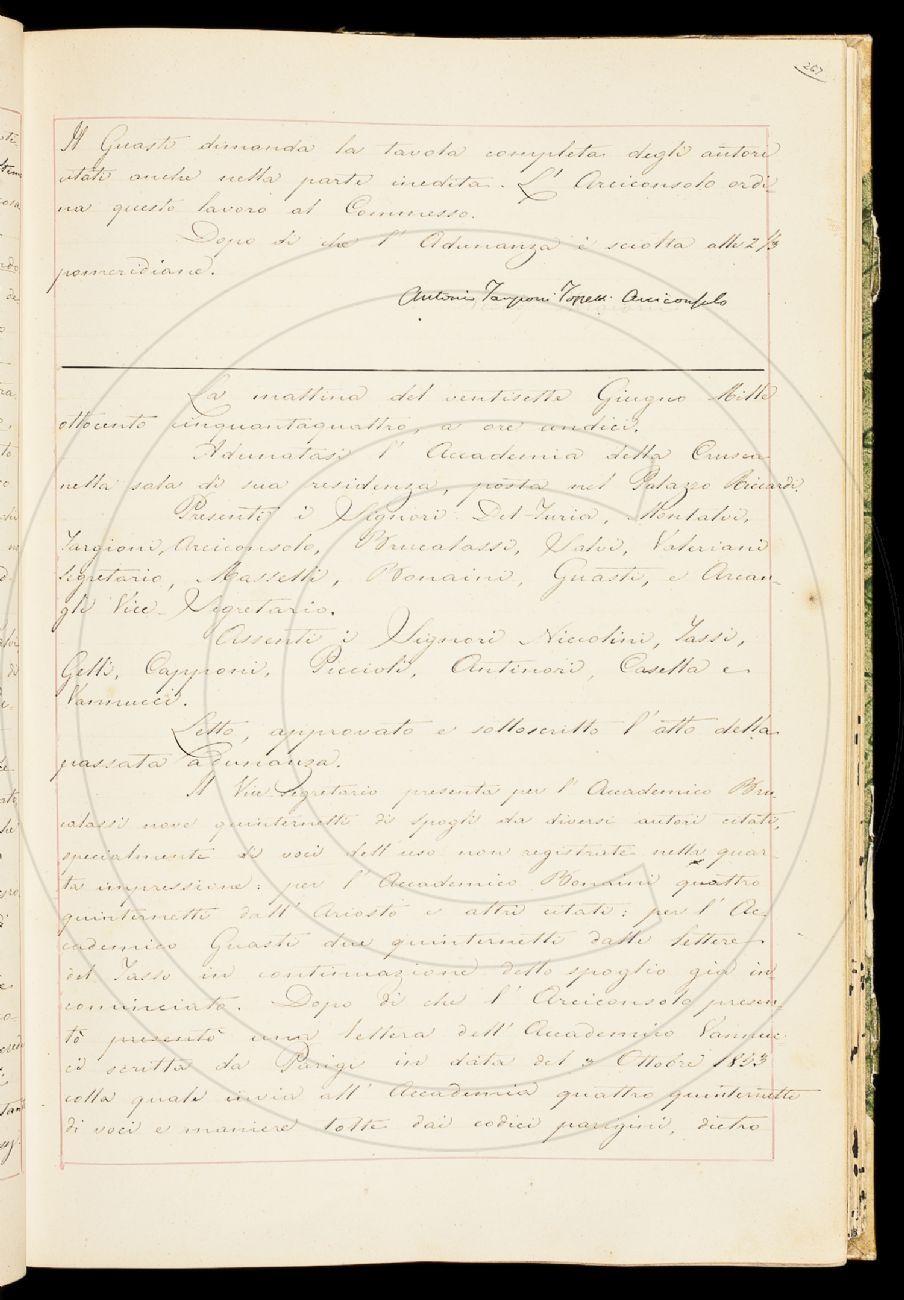 267
Il Guasti dimanda la tavola completa degli autori
citati anche nella parte inedita. L' Arciconsolo ordi-
na questo lavoro al Commesso.
Dopo di che l' Adunanza è sciolta alle 2 1/3
pomeridiane.
Antonio Targioni Tozzetti Arciconsolo
La mattina del ventisette Giugno Mille
ottocento cinquantaquattro, a ore undici.
Adunatasi l' Accademia della Crusca
nella sala di sua residenza, posta nel Palazzo Riccardi.
Presenti i Signori Del-Furia, Montalvi,
Targioni, Arciconsolo, Brucalassi, Salvi, Valeriani
Segretario, Masselli, Bonaini, Guasti, e Arcan-
gli Vice-Segretario.
Assenti i Signori Niccolini, Tassi,
Gelli, Capponi, Puccioli, Antinori, Casella e
Vannucci.
Letto, approvato e sottoscritto l' atto della
passata adunanza.
Il Vice Segretario presenta per l' Accademico Bru-
calassi nove quinternetti di spogli da diversi autori citati,
specialmente di voci dell' uso non registrate nella quar-
ta impressione: per l' Accademico Bonaini quattro
quinternetti dall' Ariosto e altri citati: per l' Ac-
cademico Guasti due quinternetti dalle lettere
del Tasso in continuazione dello spoglio già in-
cominciato. Dopo di che l' Arciconsolo presen-
tò presentò una lettera dell' Accademico Vannuc-
ci scritta da Parigi in data del 3 Ottobre 1853
colla quale invia all' Accademia quattro quinternetti
di voci e maniere tolte dai codici parigini, dietro